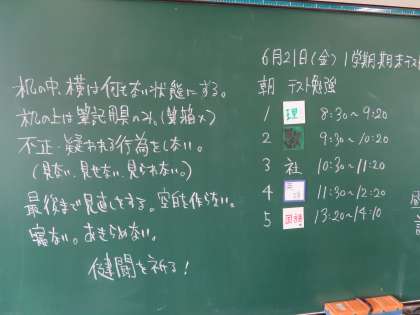 机の中、横は何もない状態にする。
机の上は筆記用具のみ。(筆箱×)
不正・疑われる行為をしない。
(見ない、見せない、見られない。)
最後まで見直しをする。空白を作らない。
寝ない。あきらめない。
健闘を祈る!
6月21日(金)1学期期末テスト
朝 テスト勉強
1 理 8:30~9:20
2 9:30~10:20
3 社 10:30~11:20
4 英語 11:30~12:20
5 国語 13:20~14:10